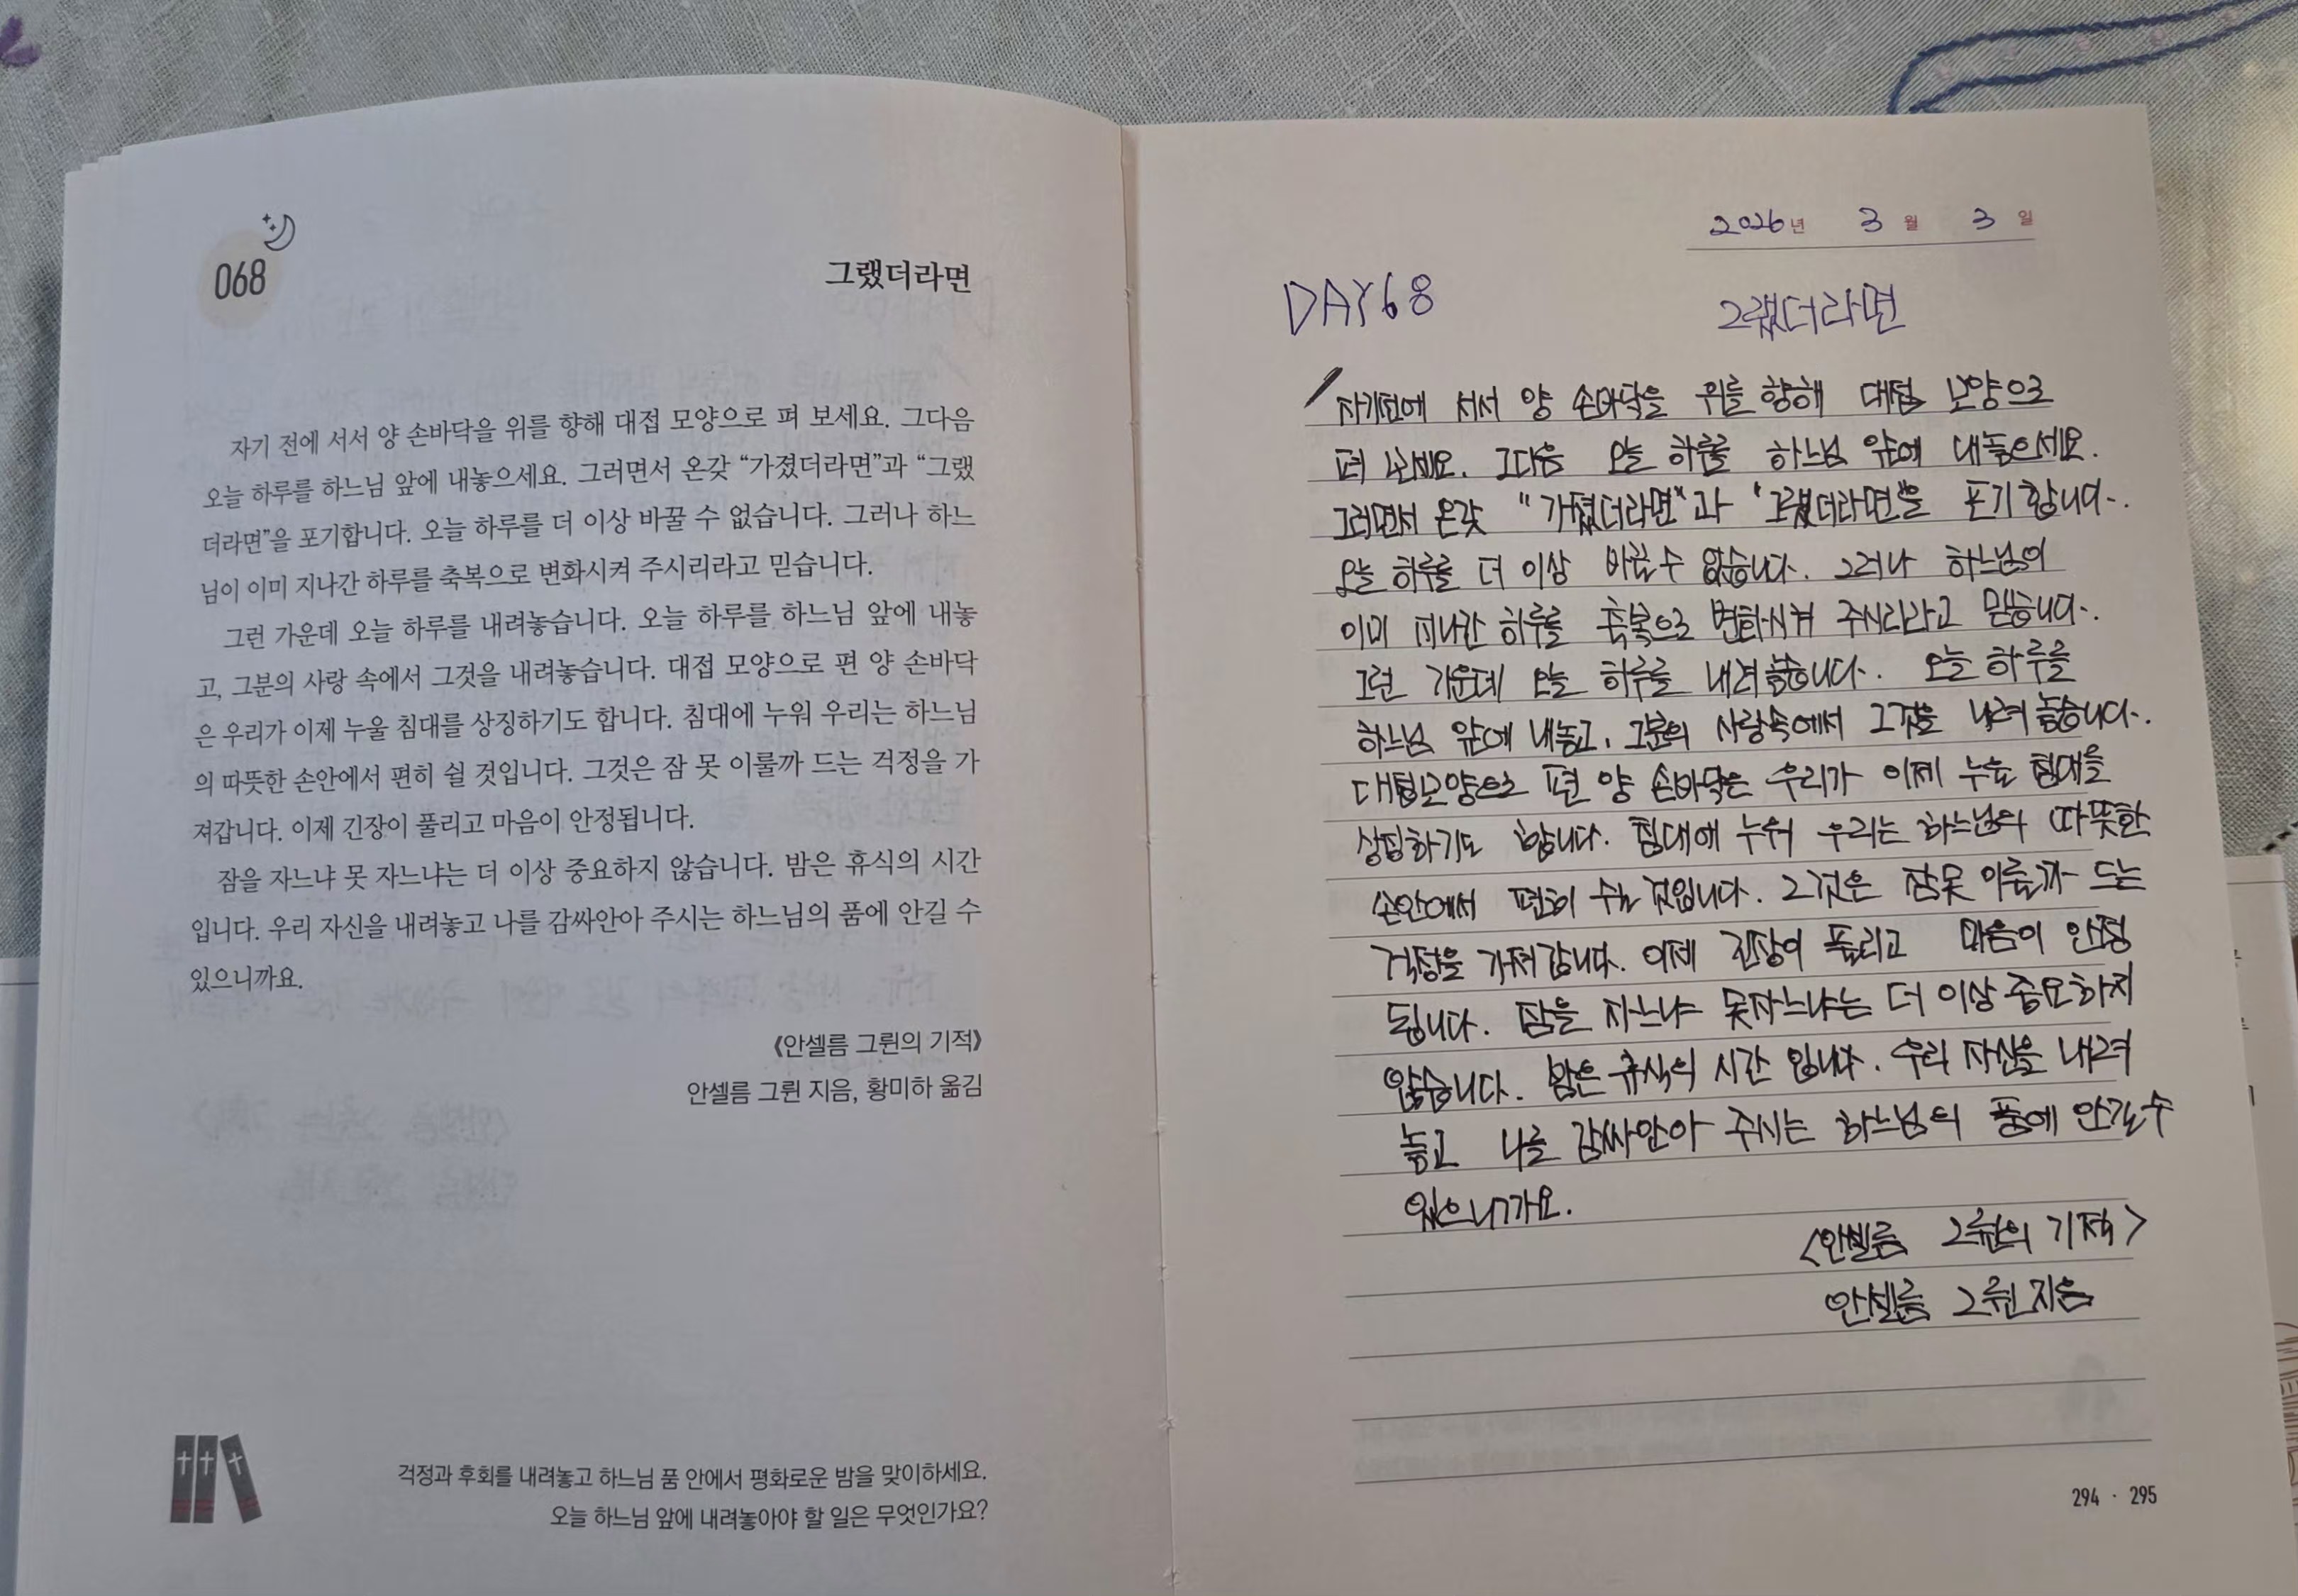 068
그랬더라면
자기 전에 서서 양 손바닥을 위를 향해 대접 모양으로 펴 보세요. 그다음
오늘 하루를 하느님 앞에 내놓으세요. 그러면서 온갖 “가졌더라면”과 “그랬
더라면”을 포기합니다. 오늘 하루를 더 이상 바꿀 수 없습니다. 그러나 하느
님이 이미 지나간 하루를 축복으로 변화시켜 주시리라고 믿습니다.
그런 가운데 오늘 하루를 내려놓습니다. 오늘 하루를 하느님 앞에 내놓
고, 그분의 사랑 속에서 그것을 내려놓습니다. 대접 모양으로 편 양 손바닥
은 우리가 이제 누울 침대를 상징하기도 합니다. 침대에 누워 우리는 하느님
의 따뜻한 손안에서 편히 쉴 것입니다. 그것은 잠 못 이룰까 드는 걱정을 가
져갑니다. 이제 긴장이 풀리고 마음이 안정됩니다.
잠을 자느냐 못 자느냐는 더 이상 중요하지 않습니다. 밤은 휴식의 시간
입니다. 우리 자신을 내려놓고 나를 감싸안아 주시는 하느님의 품에 안길 수
있으니까요.
《안셀름 그륀의 기적》
안셀름 그륀 지음, 황미하 옮김
걱정과 후회를 내려놓고 하느님 품 안에서 평화로운 밤을 맞이하세요.
오늘 하느님 앞에 내려놓아야 할 일은 무엇인가요?
2026년 3월 3일
DAY68 그랬더라면
자기전에 서서 양 손바닥을 위를 향해 대접 모양으로
펴 보세요. 그다음 오늘 하루를 하느님 앞에 내놓으세요.
그러면서 온갖 "가졌더라면"과 "그랬더라면"을 포기합니다.
오늘 하루를 더 이상 바꿀수 없습니다. 그러나 하느님이
이미 지나간 하루를 축복으로 변화시켜 주시리라고 믿습니다.
그런 가운데 오늘 하루를 내려놓습니다. 오늘 하루를
하느님 앞에 내놓고, 그분의 사랑속에서 그것을 내려놓습니다.
대접모양으로 편 양 손바닥은 우리가 이제 누울 침대를
상징하기도 합니다. 침대에 누워 우리는 하느님의 따뜻한
손안에서 편히 쉴 것입니다. 그것은 잠못 이룰까 드는
걱정을 가져갑니다. 이제 긴장이 풀리고 마음이 안정
됩니다. 잠을 자느냐 못자느냐는 더 이상 중요하지
않습니다. 밤은 휴식의 시간 입니다. 우리 자신을 내려
놓고 나를 감싸안아 주시는 하느님의 품에 안길수
있으니까요.
<안셀름 그륀의 기적>
안셀름 그륀 지음
294 · 295